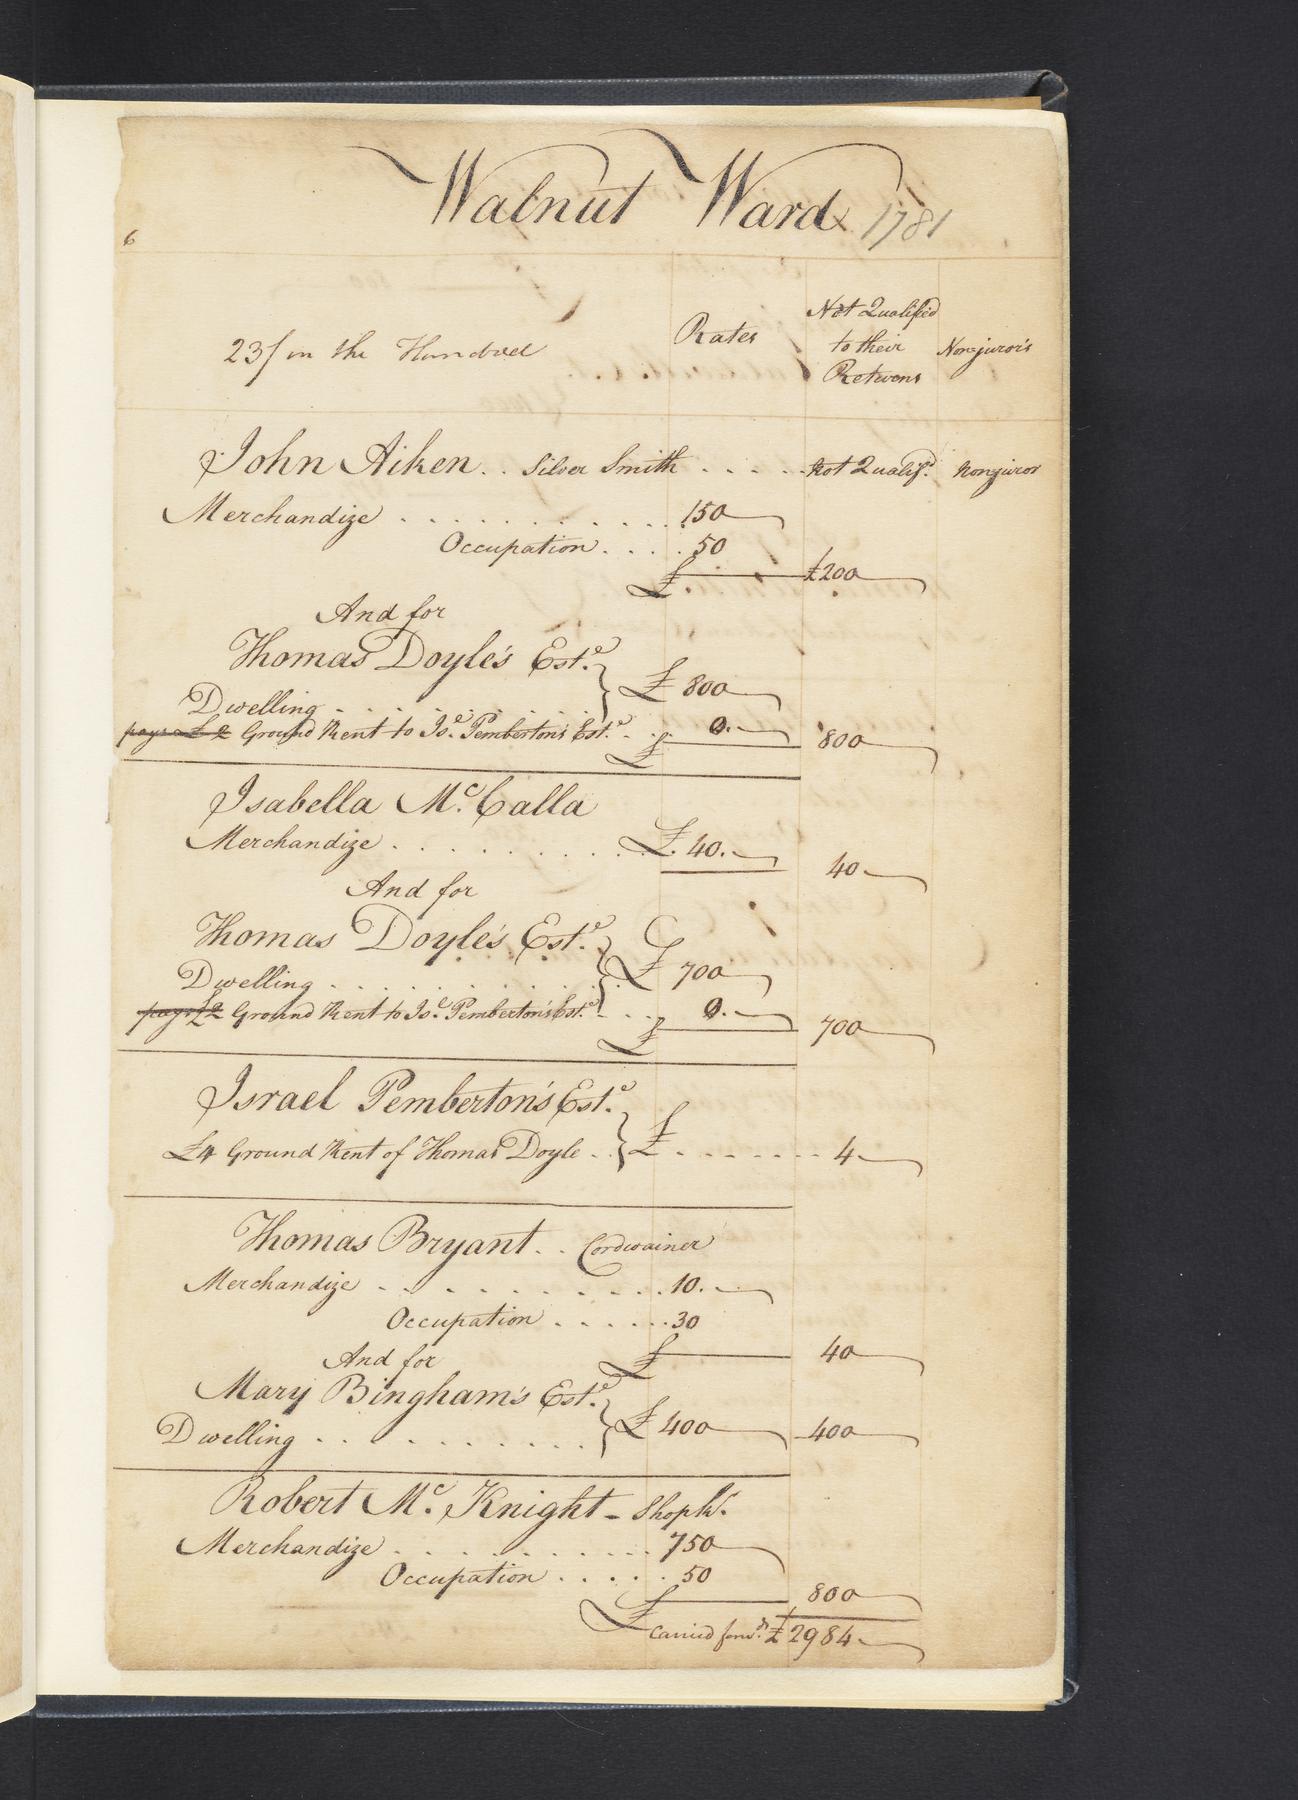 Walnut Ward 1781
6
23/ in the Hundred Rates Not Qualified to their Returns Nonjurors
John Aiken . . Silver Smith . . . . . Not Qualifd. Nonjuror
Merchandize . . . . . . . . . . . . 150
Occupation . . . . 50
£ £200
And for
Thomas Doyle's Este.
Dwelling . . . . . . . . £ 800
pays £2 Ground Rent to Isl. Pemberton's Este. . . 0. 800
£
Isabella Mc.Calla
Merchandize . . . . . . . . . . £. 40. 40
And for
Thomas Doyle's Este.
Dwelling . . . . . . . . . . £ 700
pays £2 Ground Rent to Isl. Pemberton's Este. . . 0. 700
£
Israel Pemberton's Este.
£4 Ground Rent of Thomas Doyle . . £ . . . . . . . . 4
Thomas Bryant . . Cordwainer
Merchandize . . . . . . . . . . 10.
Occupation . . . . . . 30
£ 40
And for
Mary Bingham's Este.
Dwelling . . . . . . . . . . £ 400 400
Robert Mc. Knight - Shopkr.
Merchandize . . . . . . . . . . 750
Occupation . . . . . 50
£ 800
Carried forwd. £2984